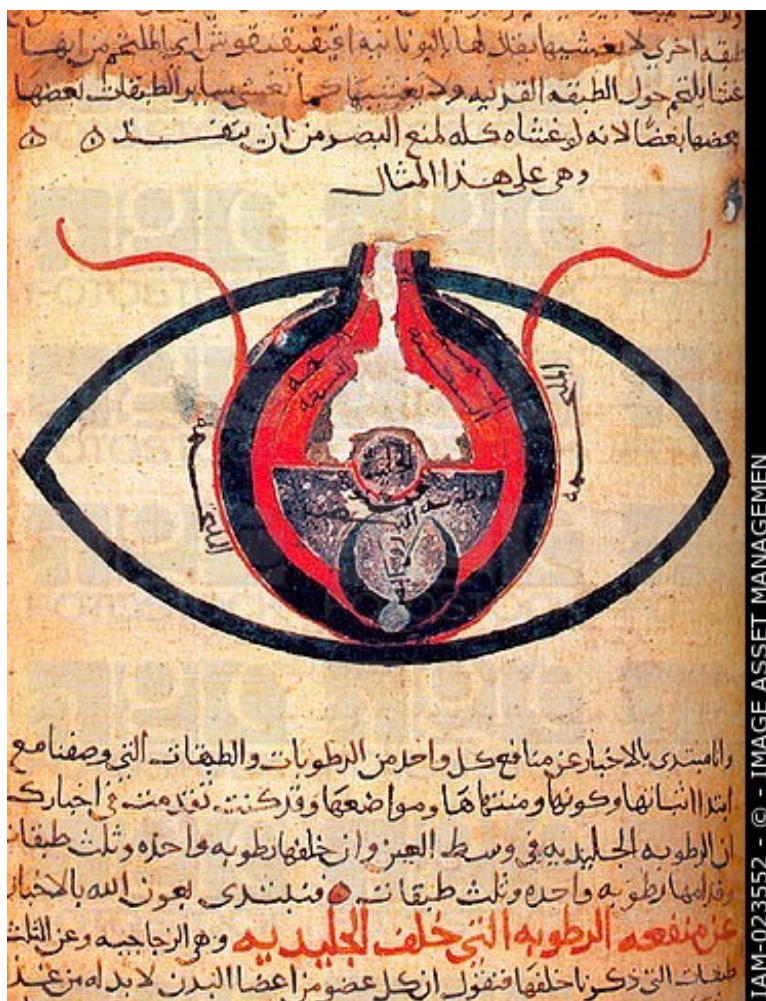 طبقه اخرى لا تغشيها يقال لها باليونانيه
غشا يلتحم حول الطبقه القرنيه ولا يغشيها كما تغشى ساير الطبقات بعضها
بعضها بعضا لانه لو غشاه كله لمنع البصر من ان ينفذ
وهى على هذا المثال
الجليديه
وانا مبتدى بالاخبار عن منافع كل واحد من الرطوبات والطبقات التى وصفنا مع
ابتدا اثباتها وكونها ومنتهاها ومواضعها وقد كنت تقدمت فى اخبارك
ان الرطوبه الجليديه فى وسط العين وان خلفها رطوبه واحده وثلث طبقات
وقدامها رطوبه واحده وثلث طبقات فنبتدى بعون الله بالاخبار
عن منفعه الرطوبه التى خلف الجليديه وهى الزجاجيه وعن الثلث
طبقات التى ذكرنا خلفها فنقول ان كل عضو من اعضا البدن لا بد له من غذا
IAM-023552 - © - IMAGE ASSET MANAGEMEN